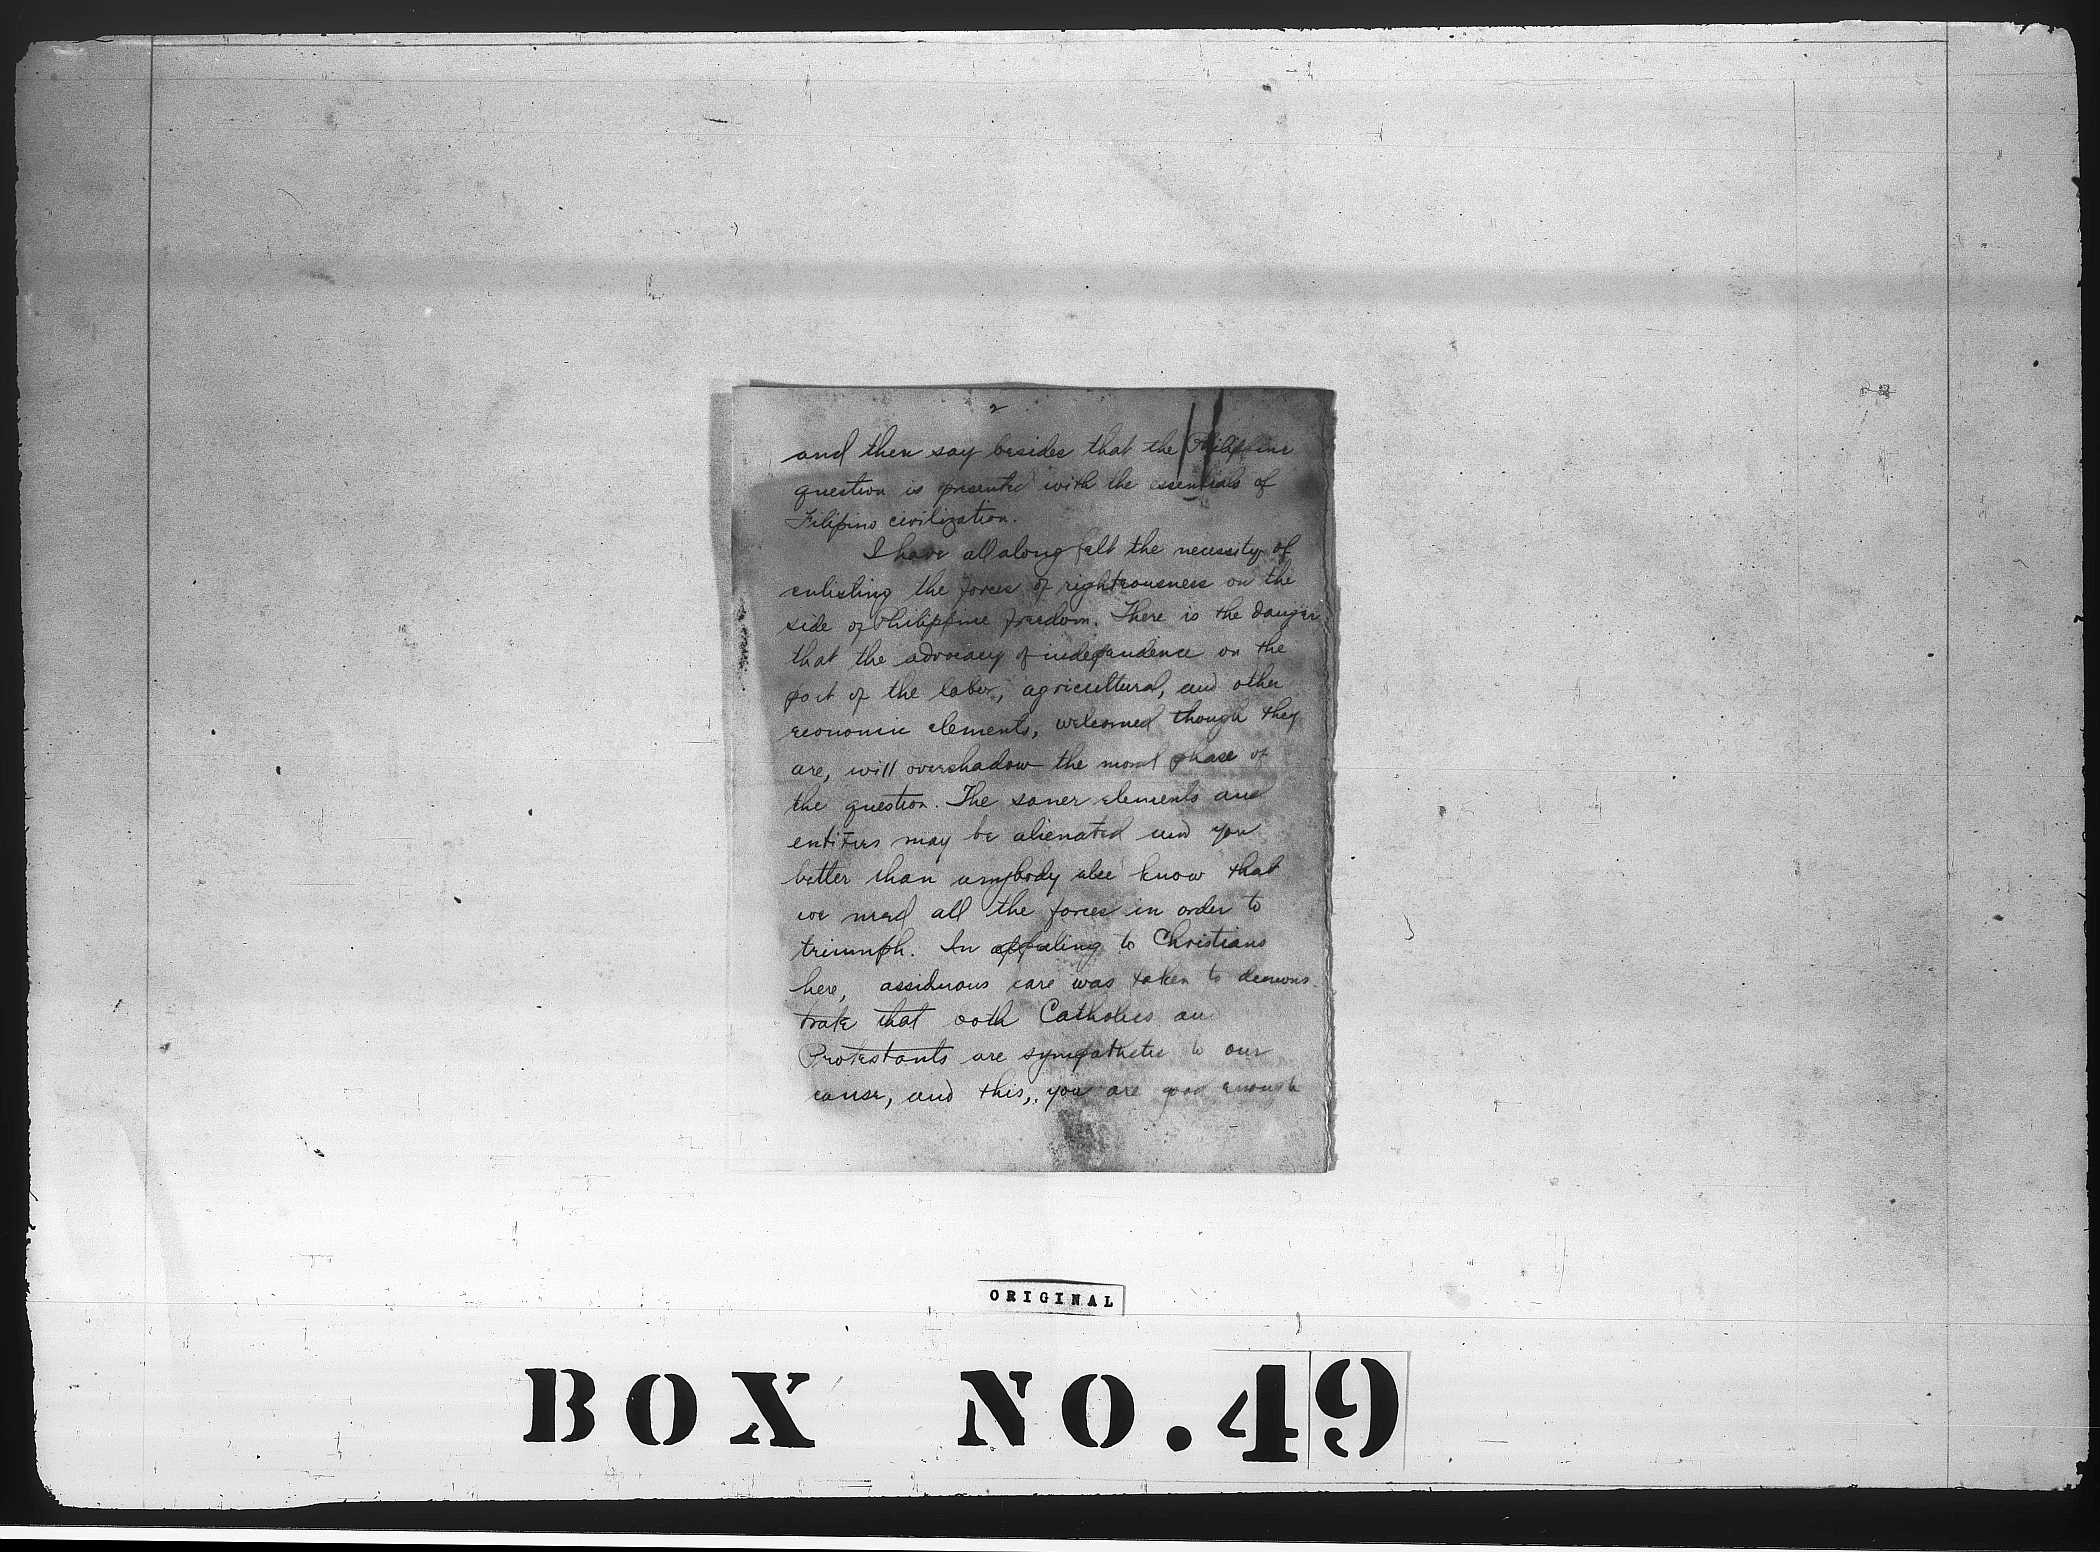 2
and then say besides that the Philippine
question is presented with the essentials of
Filipino civilization.
I have all along felt the necessity of
enlisting the forces of righteousness on the
side of Philippine freedom. There is the danger
that the advocacy of independence on the
part of the labor, agricultural, and other
economic elements, welcomed though they
are, will overshadow the moral phase of
the question. The saner elements and
entities may be alienated and you
better than anybody else know that
we need all the forces in order to
triumph. In appealing to Christians
here, assiduous care was taken to demons-
trate that both Catholics and
Protestants are sympathetic to our
cause, and this, you are good enough
ORIGINAL
BOX NO. 49